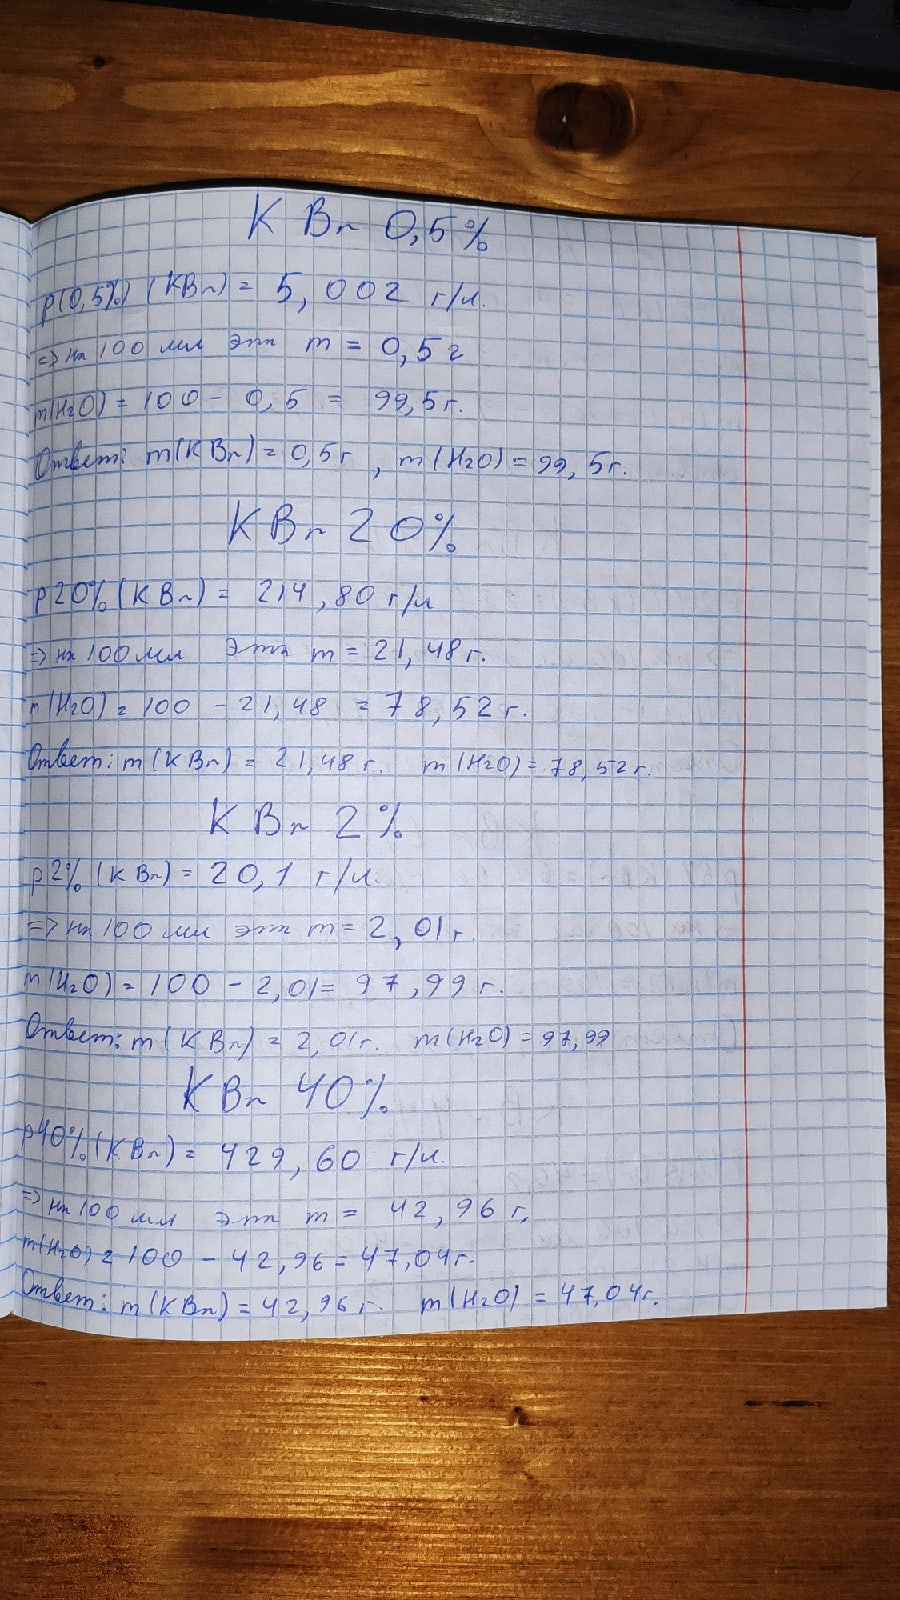 KBr 0,5%
p(0,5%) (KBr) = 5,002 г/л.
=> на 100 мл это m = 0,5 г
m(H2O) = 100 - 0,5 = 99,5 г.
Ответ: m(KBr) = 0,5 г , m(H2O) = 99,5 г.
KBr 20%
p20% (KBr) = 214,80 г/л
=> на 100 мл это m = 21,48 г.
m(H2O) = 100 - 21,48 = 78,52 г.
Ответ: m(KBr) = 21,48 г. m(H2O) = 78,52 г.
KBr 2%
p2% (KBr) = 20,1 г/л.
=> на 100 мл это m = 2,01 г.
m(H2O) = 100 - 2,01 = 97,99 г.
Ответ: m(KBr) = 2,01 г. m(H2O) = 97,99
KBr 40%
p40% (KBr) = 429,60 г/л.
=> на 100 мл это m = 42,96 г.
m(H2O) = 100 - 42,96 = 47,04 г.
Ответ: m(KBr) = 42,96 г. m(H2O) = 47,04 г.